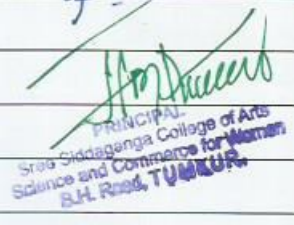 PRINCIPAL
Sree Siddaganga College of Arts
Science and Commerce for Women
B.H. Road, TUMKUR.